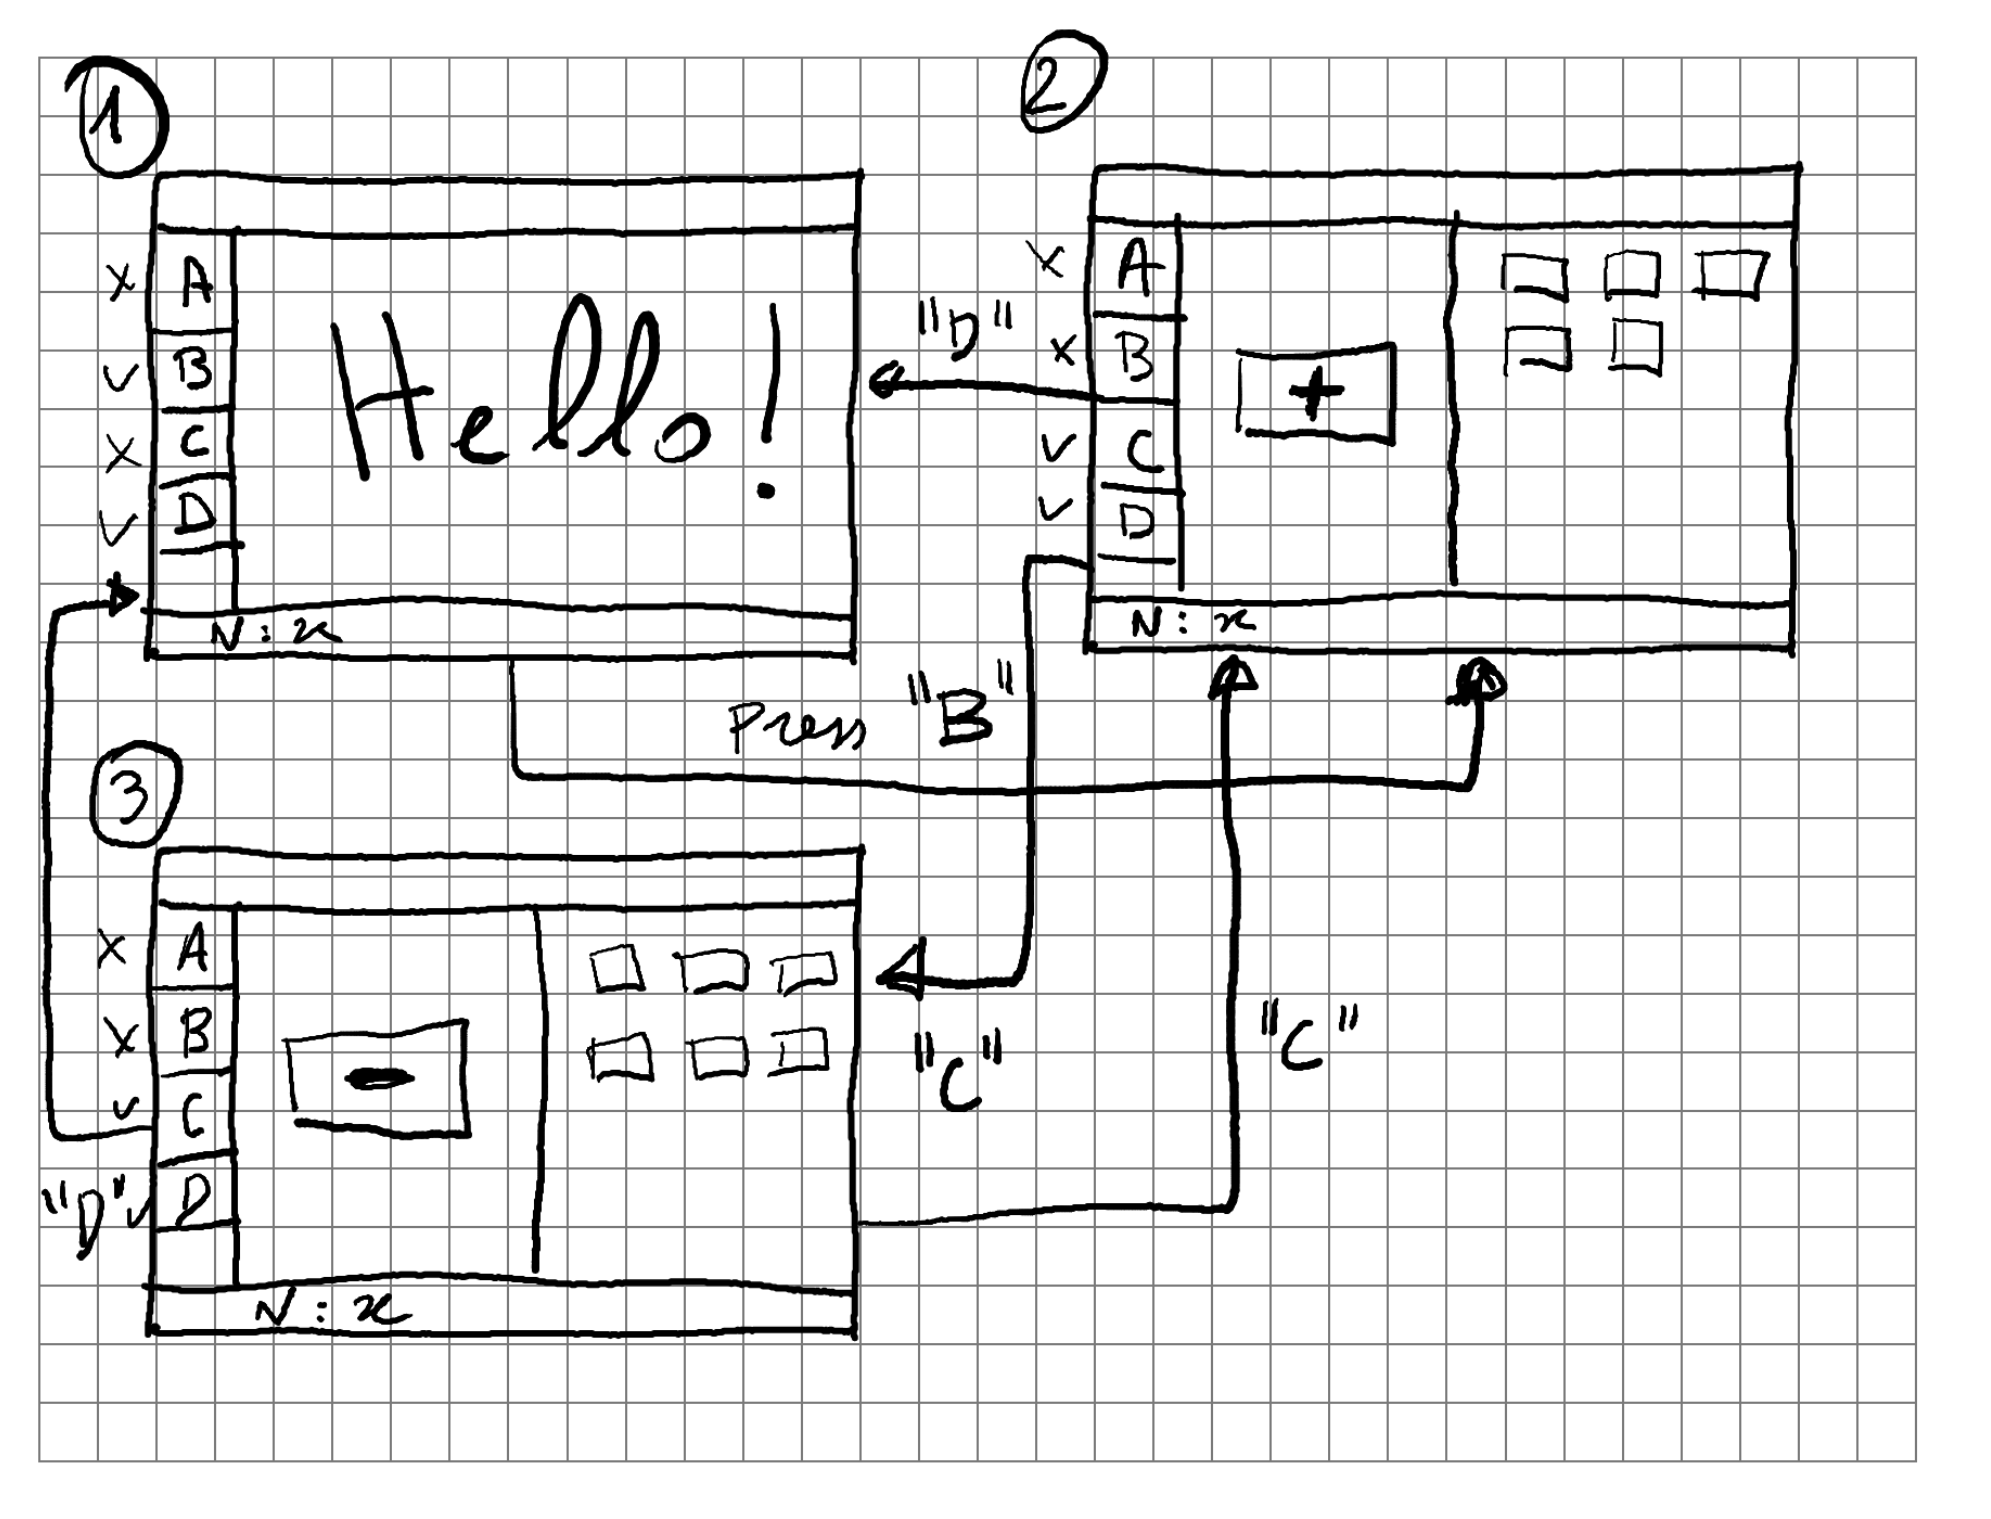 1
x A
v B
x C
v D
Hello!
N: x
2
x A
x B
v C
v D
+
N: x
"D"
Press "B"
3
x A
x B
v C
"D" v D
-
N: x
"C"
"C"